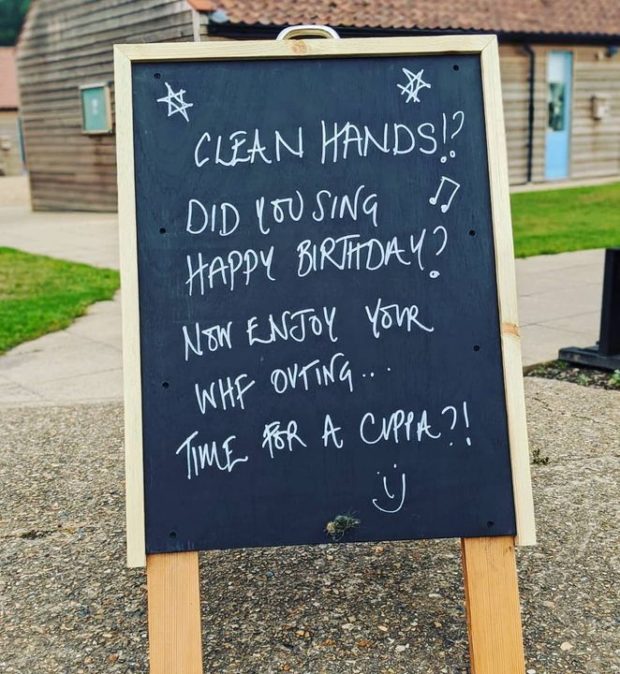 CLEAN HANDS!?
DID YOU SING
HAPPY BIRTHDAY?
NOW ENJOY YOUR
WHF OUTING...
TIME FOR A CUPPA?!